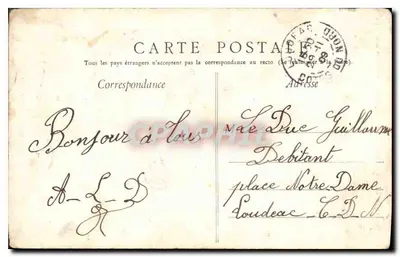 CARTE POSTA
Tous les pays étrangers n'acceptent pas la correspondance au recto
Correspondance
Adresse
Bonjour à tous
A-L-D
Le Duc Guillaume
Debitant
place Notre Dame
Loudeac - C-D-N